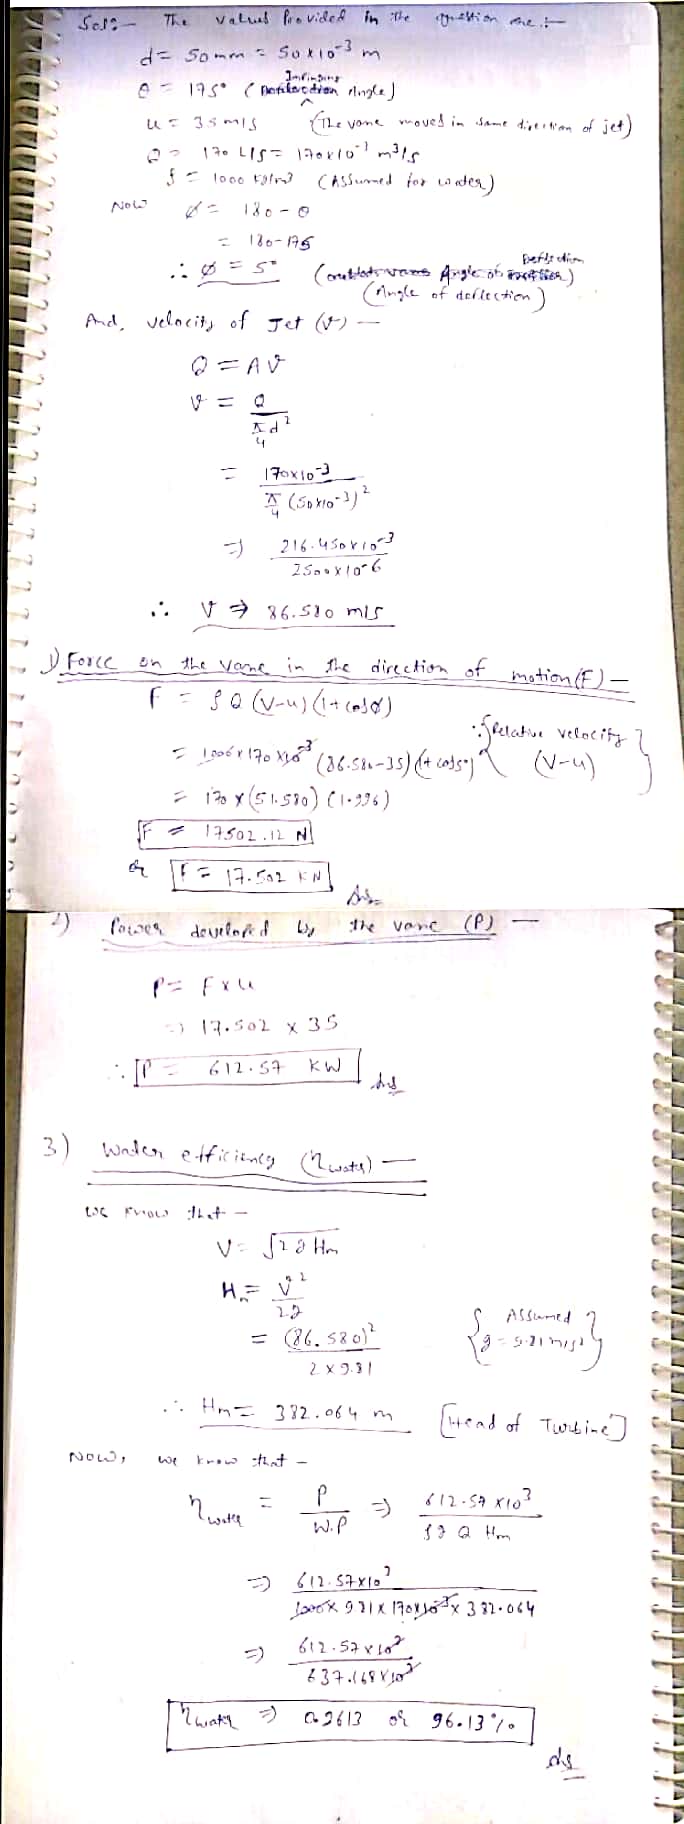 Sol:- The values Provided in the question are :-
d = 50mm = 50×10⁻³ m
θ = 175° (Impinging Angle)
u = 35 m/s (The vane moved in same direction of jet)
Q = 170 L/s = 170×10⁻³ m³/s
ρ = 1000 kg/m³ (Assumed for water)
Now ø = 180 - θ
= 180-175
∴ ø = 5° (Angle of Deflection)
(Angle of deflection)
And, velocity of Jet (V) —
Q = AV
V = Q / π/4 d²
= 170×10⁻³ / π/4 (50×10⁻³)²
⇒ 216.450×10⁻³ / 2500×10⁻⁶
∴ V ⇒ 86.580 m/s
1) Force on the vane in the direction of motion (F) —
F = ρQ (V-u) (1+cosø)
∵ {Relative velocity (V-u)}
= 1000×170×10⁻³ (86.580-35) (1+cos5°)
= 170 × (51.580) (1.996)
F = 17502.12 N
or F = 17.502 KN Ans
2) Power developed by the vane (P) —
P = F×u
⇒ 17.502 × 35
∴ P = 612.57 KW Ans
3) Water efficiency (η water) —
We know that —
V = √2gHm
Hm = V² / 2g
= (86.580)² / 2×9.81 {Assumed g = 9.81 m/s²}
∴ Hm = 382.064 m [Head of Turbine]
Now, we know that —
η water = P / W.P ⇒ 612.57×10³ / ρg Q Hm
⇒ 612.57×10³ / 1000×9.81×170×10⁻³×382.064
⇒ 612.57×10³ / 637.168×10³
η water ⇒ 0.9613 or 96.13% Ans